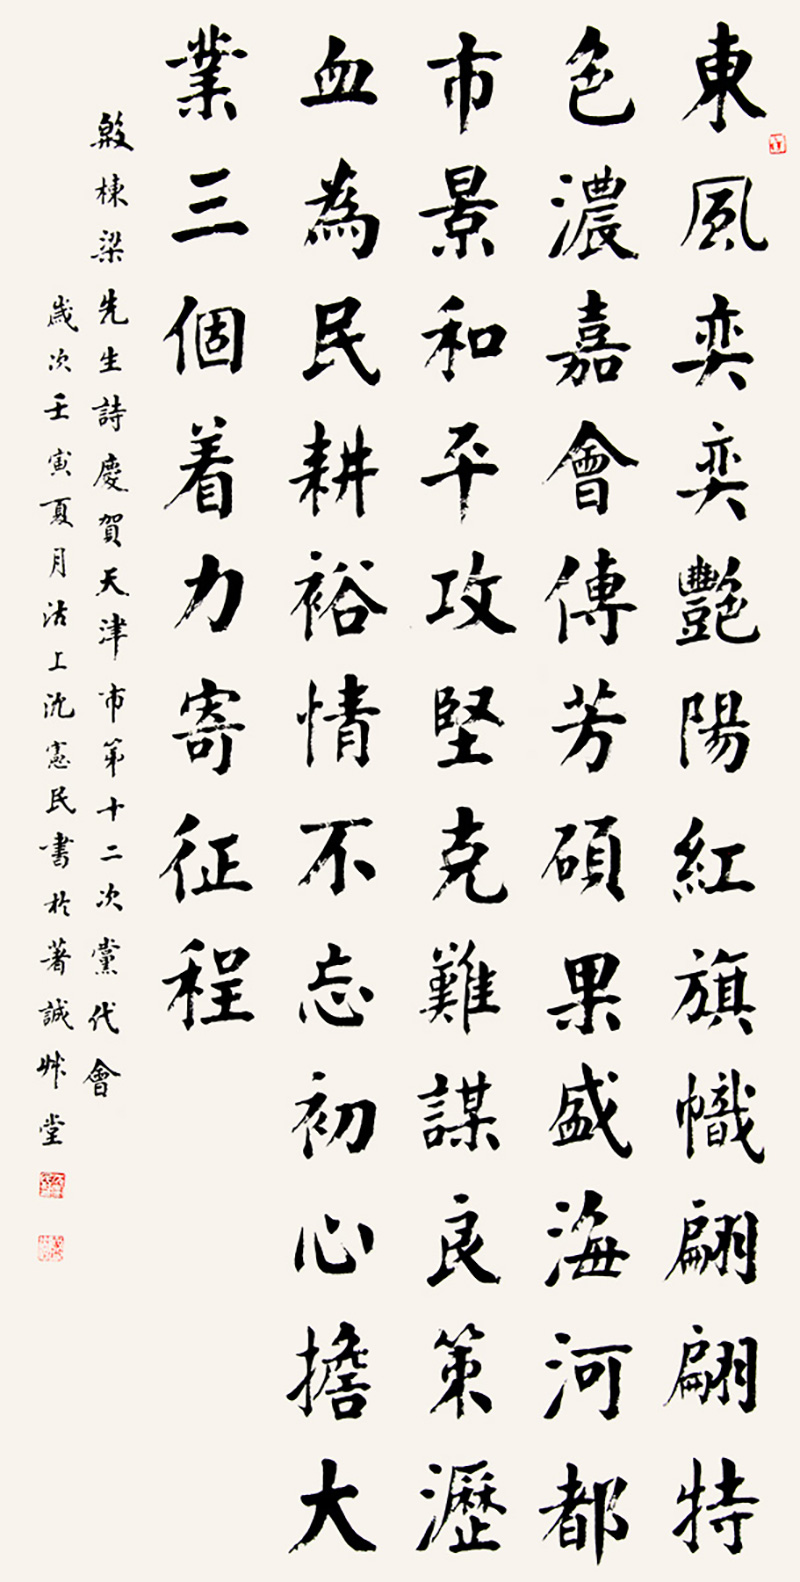 東風奕奕艷陽紅旗幟翩翩特
色濃嘉會傳芳碩果盛海河都
市景和平攻堅克難謀良策瀝
血為民耕裕情不忘初心擔大
業三個着力寄征程
敦棟梁先生詩慶賀天津市第十二次黨代會
歲次壬寅夏月沽上沈憲民書於著誠艸堂